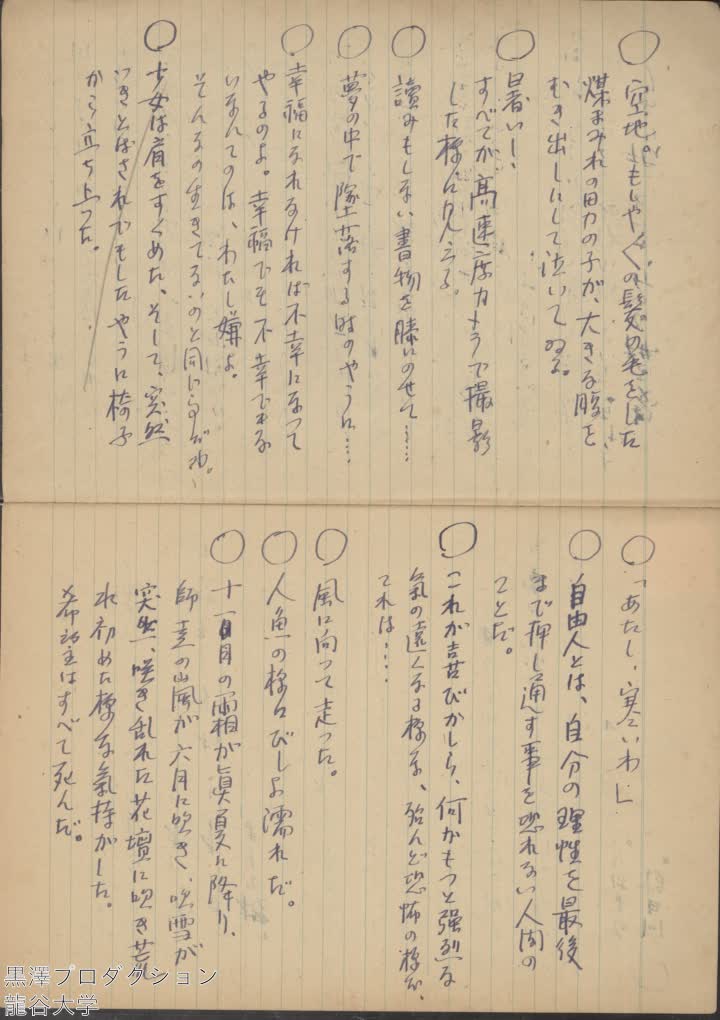 ○ 空地。もしや〱の髪の毛をした
煤まみれの男の子が、大きな腹を、
むき出しにして泣いてゐる。
○ 暑い！
すべてが高速度カメラで撮影
した様に見える。
○ 讀みもしない書物を膝にのせて……
○ 夢の中で墜落する時のやうに…
○ 幸福になれなければ不幸になって
やるのよ。幸福でも不幸でもな
いなんてのは、わたし嫌よ。
そんなの生きてないのと同じ事だわ。
○ 少女は肩をすくめた、そして、突然
いきとばされでもしたやうに椅子
から立ち上った。
○ 「あたし、寒いわ」
○ 自由人とは、自分の理性を最後
まで押し通す事を恐れない人間の
ことだ。
○ 「これが喜びかしら、何かもっと強烈な
氣の遠くなる様な、殆んど恐怖の様な、
これは…
○ 風に向って走った。
○ 人魚の様にびしょ濡れだ。
○ 十一月の霜が真夏に降り、
師走の山風が六月に吹き、吹雪が
突然、咲き乱れた花壇に吹き荒
れ初めた様な氣持がした。
希望はすべて死んだ。
黒澤プロダクション
龍谷大学